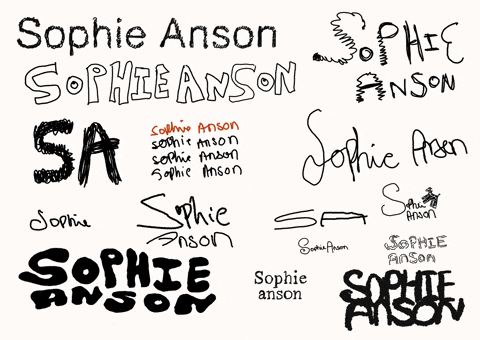 Sophie Anson
SOPHIE ANSON
SOPHIE
ANSON
SA
Sophie Anson
Sophie Anson
Sophie Anson
Sophie Anson
Sophie Anson
Sophie
Sophie
Anson
SA
Sophie
ANSON
Sophie Anson
SOPHIE
ANSON
SOPHIE
ANSON
Sophie
anson
SOPHIE
ANSON